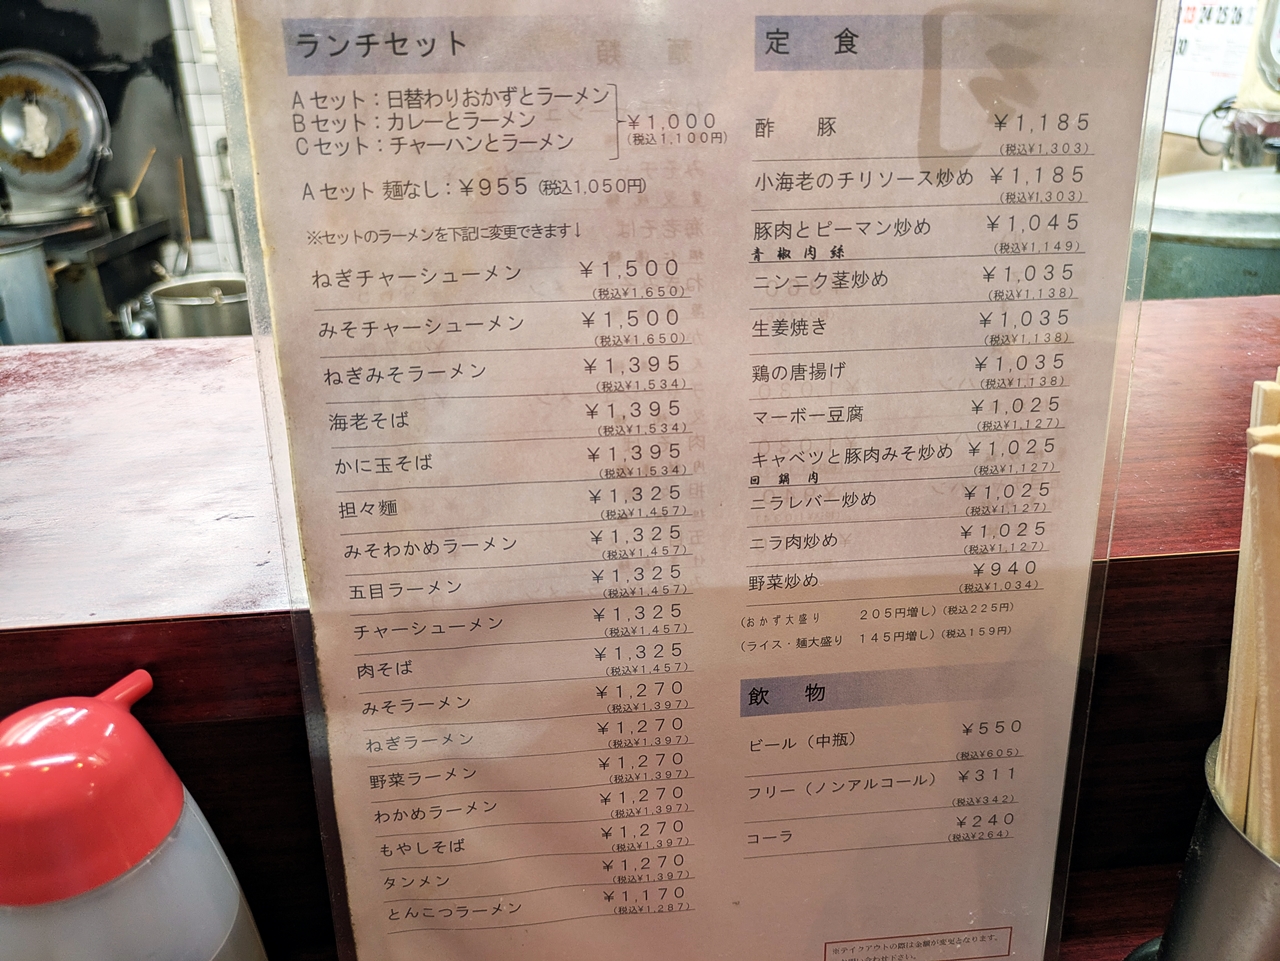 ランチセット
Aセット：日替わりおかずとラーメン
Bセット：カレーとラーメン
Cセット：チャーハンとラーメン
¥1,000
(税込1,100円)
Aセット 麺なし：¥955 (税込1,050円)
※セットのラーメンを下記に変更できます↓
ねぎチャーシューメン ¥1,500
(税込¥1,650)
みそチャーシューメン ¥1,500
(税込¥1,650)
ねぎみそラーメン ¥1,395
(税込¥1,534)
海老そば ¥1,395
(税込¥1,534)
かに玉そば ¥1,395
(税込¥1,534)
担々麺 ¥1,325
(税込¥1,457)
みそわかめラーメン ¥1,325
(税込¥1,457)
五目ラーメン ¥1,325
(税込¥1,457)
チャーシューメン ¥1,325
(税込¥1,457)
肉そば ¥1,325
(税込¥1,457)
みそラーメン ¥1,270
(税込¥1,397)
ねぎラーメン ¥1,270
(税込¥1,397)
野菜ラーメン ¥1,270
(税込¥1,397)
わかめラーメン ¥1,270
(税込¥1,397)
もやしそば ¥1,270
(税込¥1,397)
タンメン ¥1,270
(税込¥1,397)
とんこつラーメン ¥1,170
(税込¥1,287)
定食
酢豚 ¥1,185
(税込¥1,303)
小海老のチリソース炒め ¥1,185
(税込¥1,303)
豚肉とピーマン炒め ¥1,045
青椒肉絲 (税込¥1,149)
ニンニク茎炒め ¥1,035
(税込¥1,138)
生姜焼き ¥1,035
(税込¥1,138)
鶏の唐揚げ ¥1,035
(税込¥1,138)
マーボー豆腐 ¥1,025
(税込¥1,127)
キャベツと豚肉みそ炒め ¥1,025
回鍋肉 (税込¥1,127)
ニラレバー炒め ¥1,025
(税込¥1,127)
ニラ肉炒め ¥1,025
(税込¥1,127)
野菜炒め ¥940
(税込¥1,034)
(おかず大盛り 205円増し)(税込225円)
(ライス・麺大盛り 145円増し)(税込159円)
飲物
ビール（中瓶） ¥550
(税込¥605)
フリー（ノンアルコール） ¥311
(税込¥342)
コーラ ¥240
(税込¥264)
※テイクアウトの際は金額が変更となります。
23 24 25 26
30